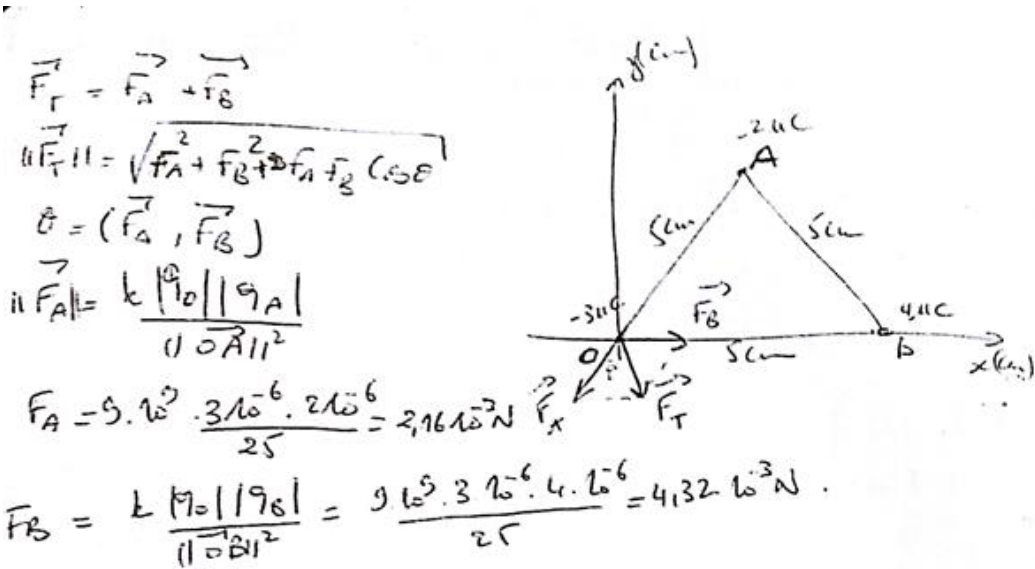 F⃗_T = F⃗_A + F⃗_B
||F⃗_T|| = √(F_A² + F_B² + 2 F_A F_B Cos θ)
θ = (F⃗_A, F⃗_B)
||F⃗_A|| = k |q_0| |q_A| / ||OA⃗||²
F_A = 9.10⁹ . 3 10⁻⁶ . 2 10⁻⁶ / 25 = 2,16 10⁻³ N
F_B = k |q_0| |q_B| / ||OB⃗||² = 9 10⁹ . 3 10⁻⁶ . 4 . 10⁻⁶ / 25 = 4,32 10⁻³ N .
y(cm)
-2 uC
A
5cm
5cm
-3uC
F⃗_B
4uC
O
5cm
B
x(cm)
F⃗_A
F⃗_T